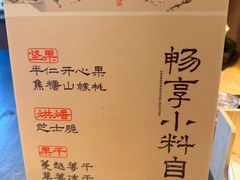 畅享小料自
坚果
半仁开心果
焦糖山核桃
烘焙
芝士脆
果干
蔓越莓干
草莓冻干